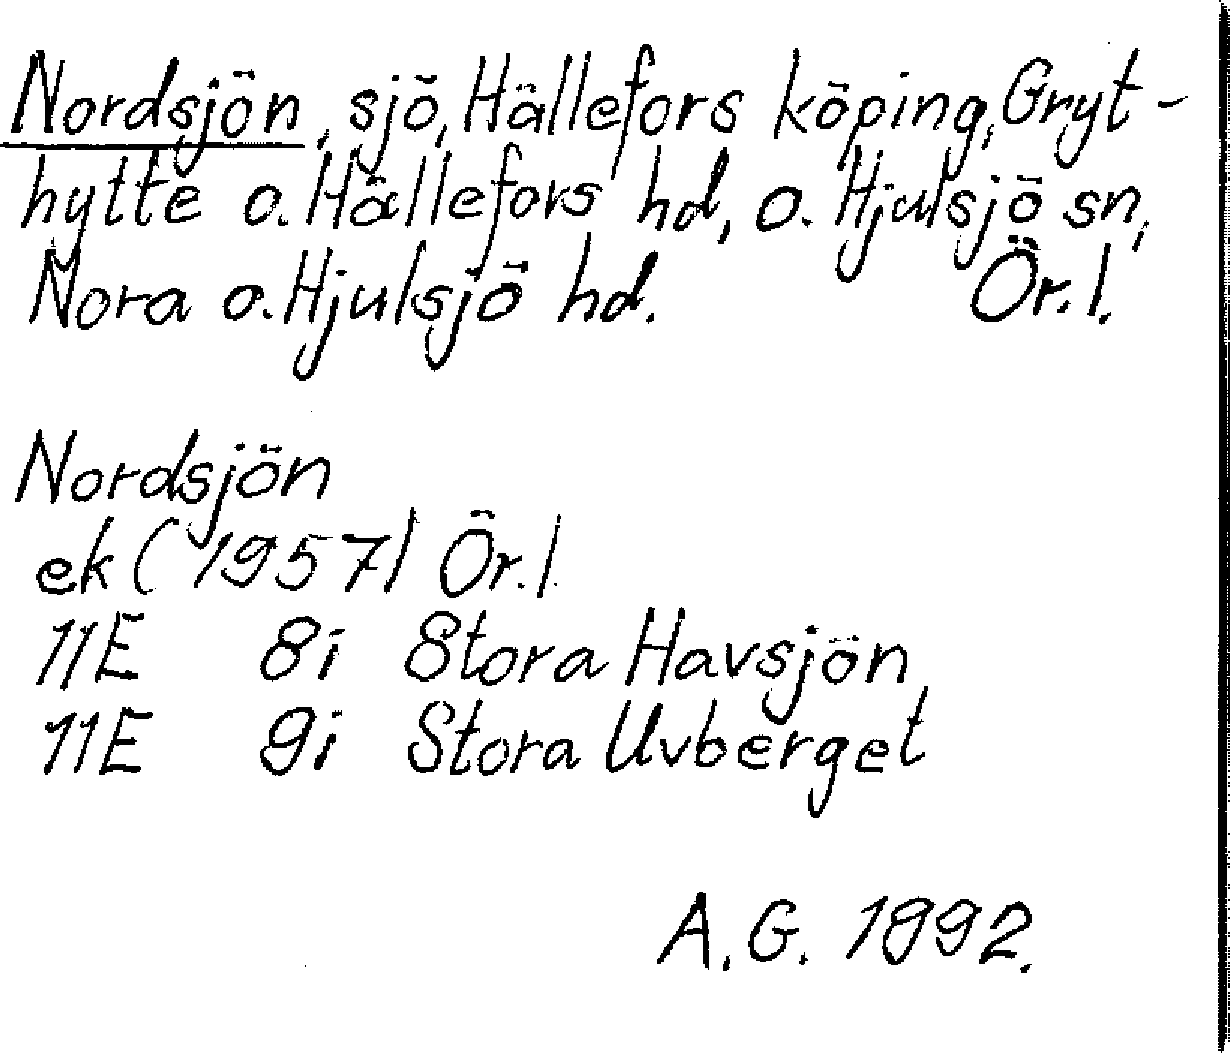 Nordsjön, sjö, Hällefors köping, Gryt-
hytte o. Hällefors hd, o. Hjulsjö sn,
Nora o. Hjulsjö hd. Ör. l.
Nordsjön
ek (1957) Ör. l.
11E 8i Stora Havsjön
11E 9i Stora Uvberget
A.G. 1992.